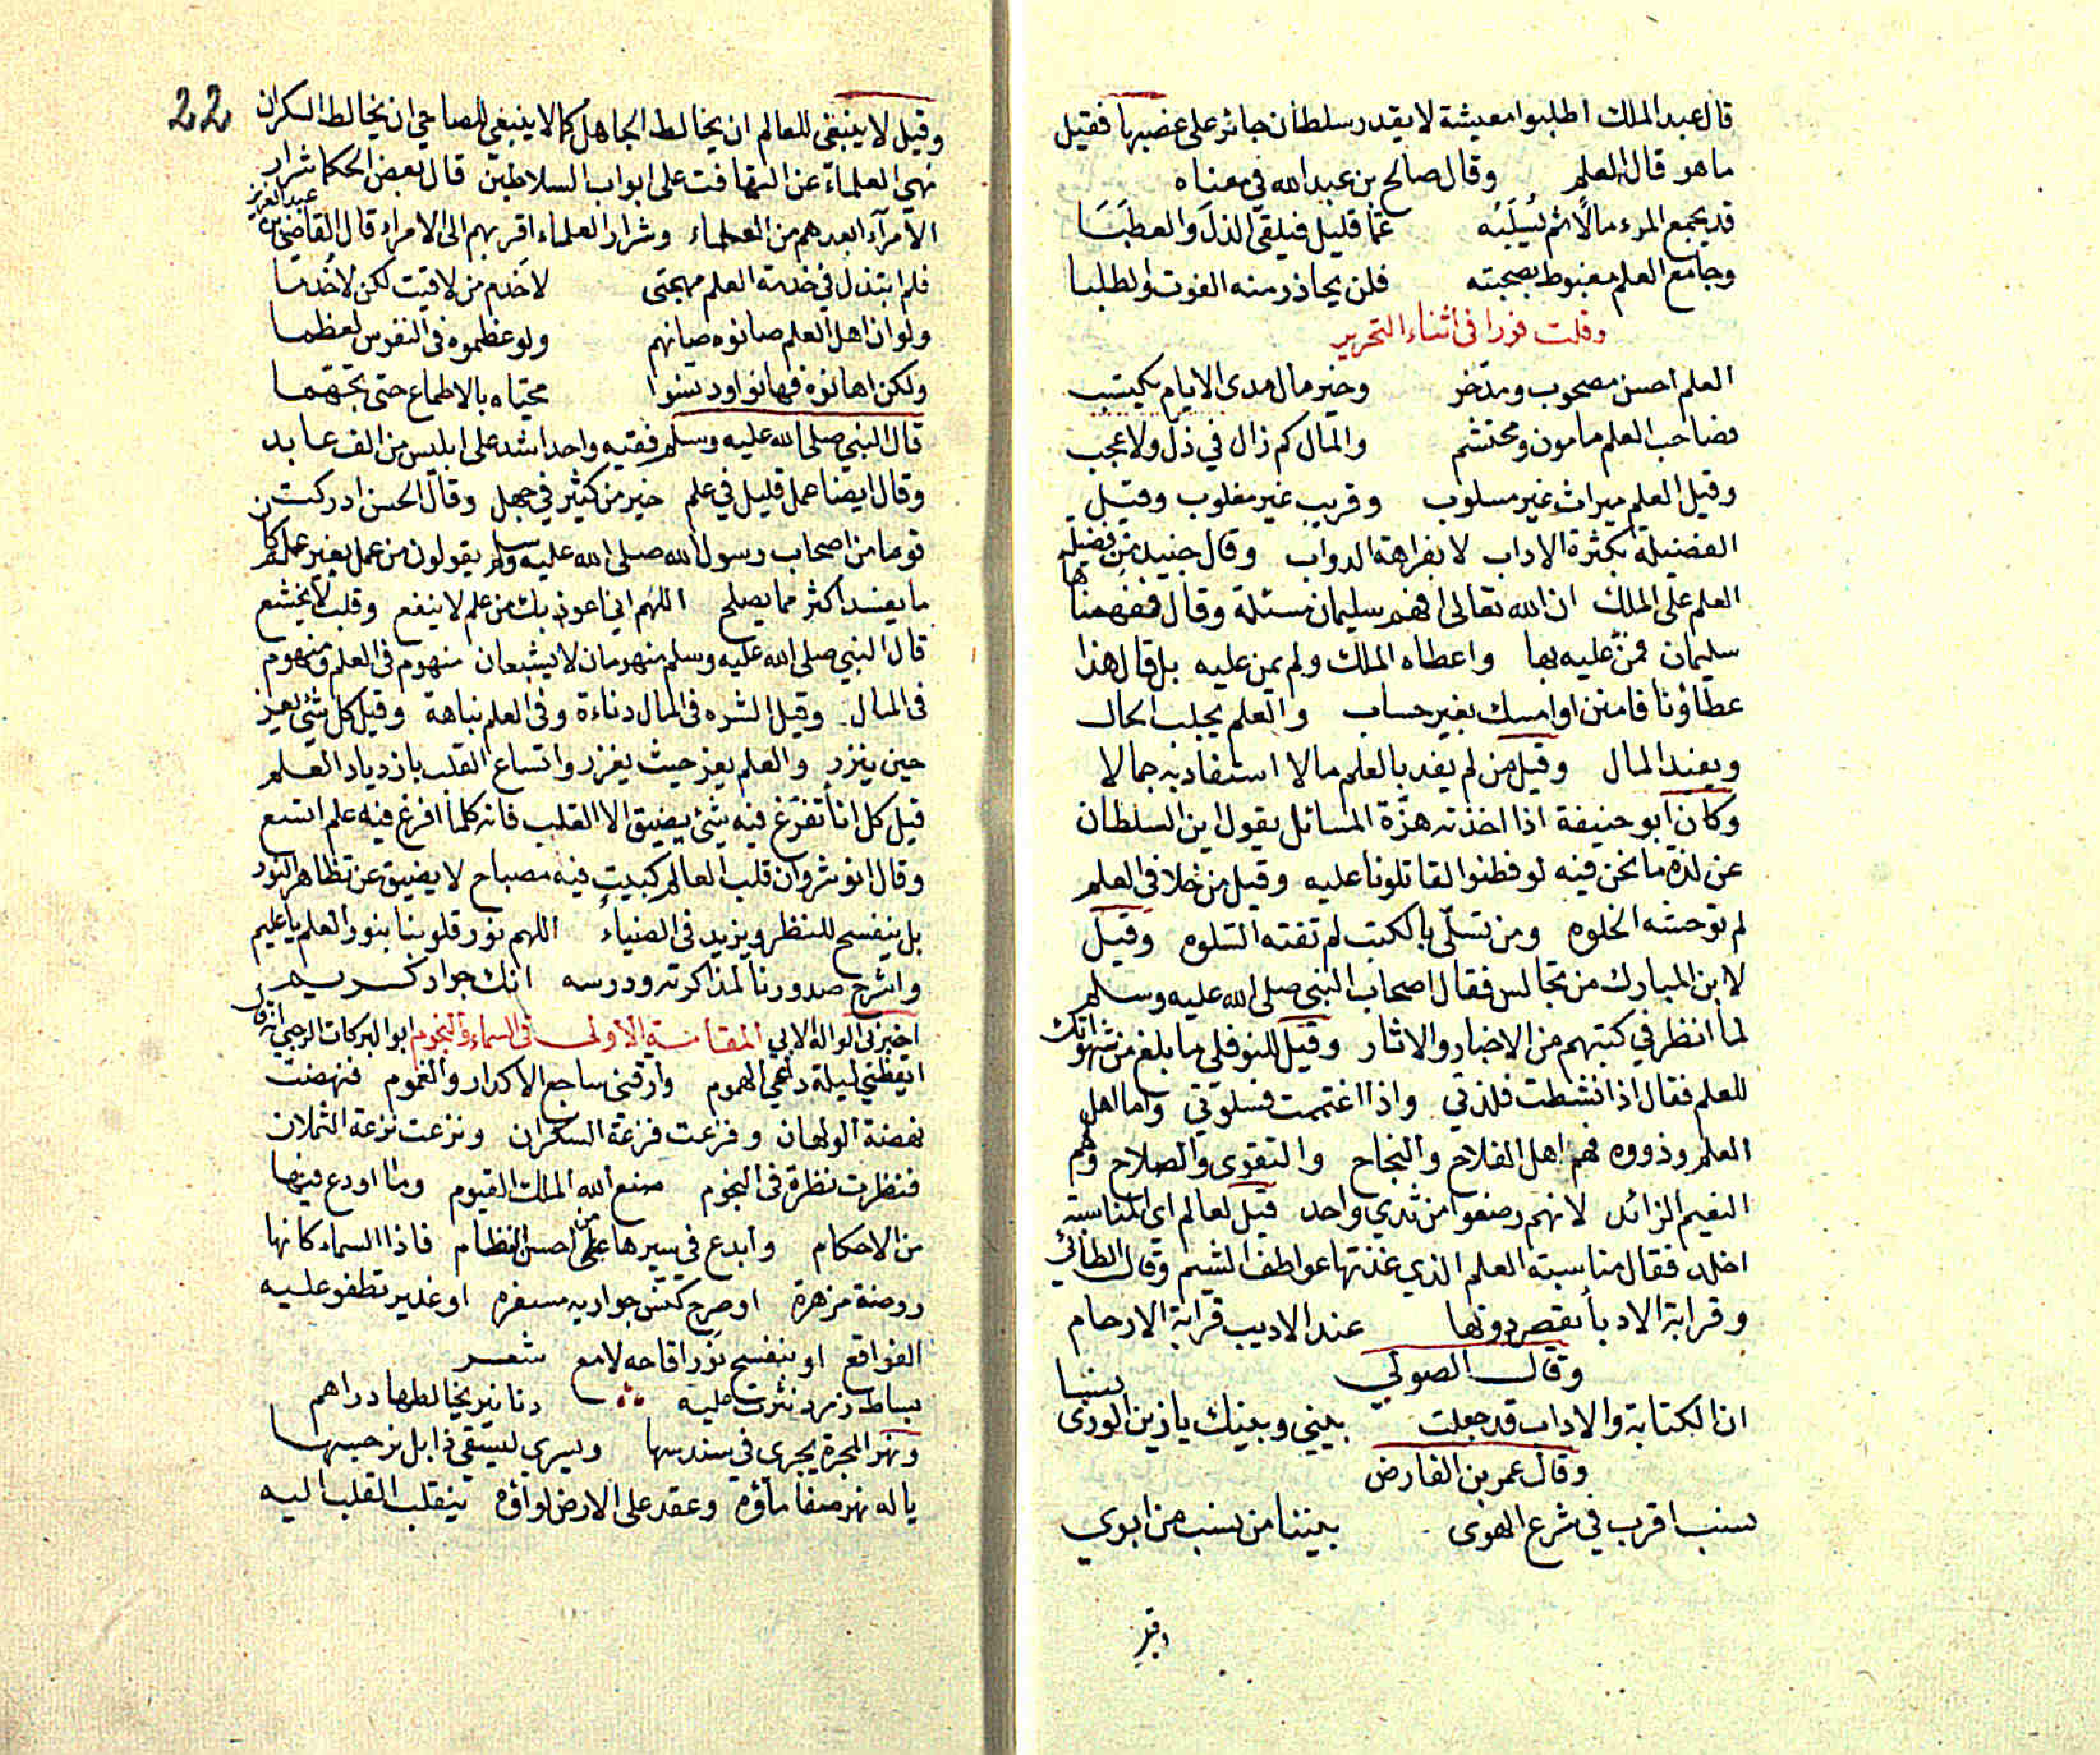 قال عبد الملك اطلبوا معيشة لا يقدر سلطان جائر على غضبها فقيل
ما هو قال العلم وقال صالح بن عبد الله في معناه
قد يجمع المرء مالا ثم يُسلَبُه عمّا قليل فيلقى الذل والعطبَا
وجامع العلم مغبوط بصحبته فلن يحاذر منه الفوت والطلبا
وقلت فورا في اثناء التحرير
العلم احسن مصحوب ومدخر وخير مال مدى الايام يكتسب
فصاحب العلم مامون ومحتشم والمال كم زال في ذل ولا عجب
وقيل العلم ميراث غير مسلوب وقريب غير مغلوب وقيل
الفضيلة بكثرة الاداب لا بفراهة الدواب وقال جنيد من فضيلة
العلم على الملك ان الله تعالى افهم سليمان مسئلة وقال ففهمناها
سليمان فمن عليه بها واعطاه الملك ولم يمن عليه بل قال هذا
عطاؤنا فامنن او امسك بغير حساب والعلم يجلب الحال
ويفيد المال وقيل من لم يفد بالعلم مالا استفاد به جمالا
وكان ابو حنيفة اذا اخذته هزة المسائل يقول اين السلطان
عن لذة ما نحن فيه لو فطنوا لقاتلونا عليه وقيل من خلا في العلم
لم توحشه الخلوه ومن تسلّى بالكتب لم تفته السلوه وقيل
لابن المبارك من تجالس فقال اصحاب النبي صلى الله عليه وسلم
لما انظر في كتبهم من الاخبار والاثار وقيل للنوفلي ما بلغ من شهوتك
للعلم فقال اذا نشطت فلذتي واذا اغتممت فسلوتي واما اهل
العلم وذووه فهم اهل الفلاح والنجاح والتقوى والصلاح وهم
النعيم الزائد لانهم رضعوا من ثدي واحد قيل لعالم اي المناسبة
اخلد فقال مناسبة العلم الذي غذتها عواطف الشيم وقال الطائي
وقرابة الادبا تقصر دونها عند الاديب قرابة الارحام
وقال الصولي
ان الكتابة والاداب قد جعلت بيني وبينك يا زين الورى نسبا
وقال عمر بن الفارض
نسب اقرب في شرع الهوى بيننا من نسب من ابوي
وقيل
22
وقيل لا ينبغي للعالم ان يخالط الجاهل كما لا ينبغي للصاحي ان يخالط السكران
نهي العلماء عن التهافت على ابواب السلاطين قال بعض الحكما شرار
الامرآء ابعدهم من العلماء وشرار العلماء اقربهم الى الامراء قال القاضي بن عبد العزيز
فلم ابتذل في خدمة العلم مهجتي لاخدم من لاقيت لكن لاخدما
ولو ان اهل العلم صانوه صانهم ولو عظموه في النفوس لعظما
ولكن اهانوه فهانوا ودنسوا محياه بالاطماع حتى تجهما
قال النبي صلى الله عليه وسلم فقيه واحد اشد على ابليس من الف عابد
وقال ايضا عمل قليل في علم خير من كثير في جهل وقال الحسن ادركت
قوما من اصحاب رسول الله صلى الله عليه وسلم يقولون من عمل بغير علم كان
ما يفسد اكثر مما يصلح اللهم اني اعوذ بك من علم لا ينفع وقلب لا يخشع
قال النبي صلى الله عليه وسلم منهومان لا يشبعان منهوم في العلم ومنهوم
في المال وقيل الشره في المال دناءة وفي العلم نباهة وقيل كل شئ يعز
حين ينزر والعلم يعز حيث يغزر واتساع القلب بازدياد العلم
قيل كل اناء تفرغ فيه شئ يضيق الا القلب فانه كلما افرغ فيه علم اتسع
وقال انوشروان قلب العالم كبيت فيه مصباح لا يضيق عن تظاهر النور
بل ينفسح للنظر ويزيد في الضياء اللهم نور قلوبنا بنور العلم يا عليم
واشرح صدورنا لمذاكرته ودرسه انك جواد كريم
المقامة الاولى في السماء والنجوم اخبرني الواله الابي ابو البركات الرحبي انه قال
ايقظني ليلة داعي الهموم وارقني ساجع الاكدار والغموم فنهضت
نهضة الولهان وفزعت فزعة السكران ونزعت نزعة الثملان
فنظرت نظرة في النجوم صنع الله الملك القيوم وما اودع فيها
من الاحكام وابدع في سيرها من على احسن النظام فاذا السماء كانها
روضة مزهرة او صرح كنس جواريه مسفره او غدير تطفو عليه
الفواقع او بنفسج نور اقاحه لامع شعر
بساط زمرد نثرت عليه دنانير يخالطها دراهم
ونهر المجرة يجري في سندسها ويسري ليسقي ذابل نرجسها
يا له نهر صفا ماؤه وعقد على الارض لواؤه ينقلب القلب اليه